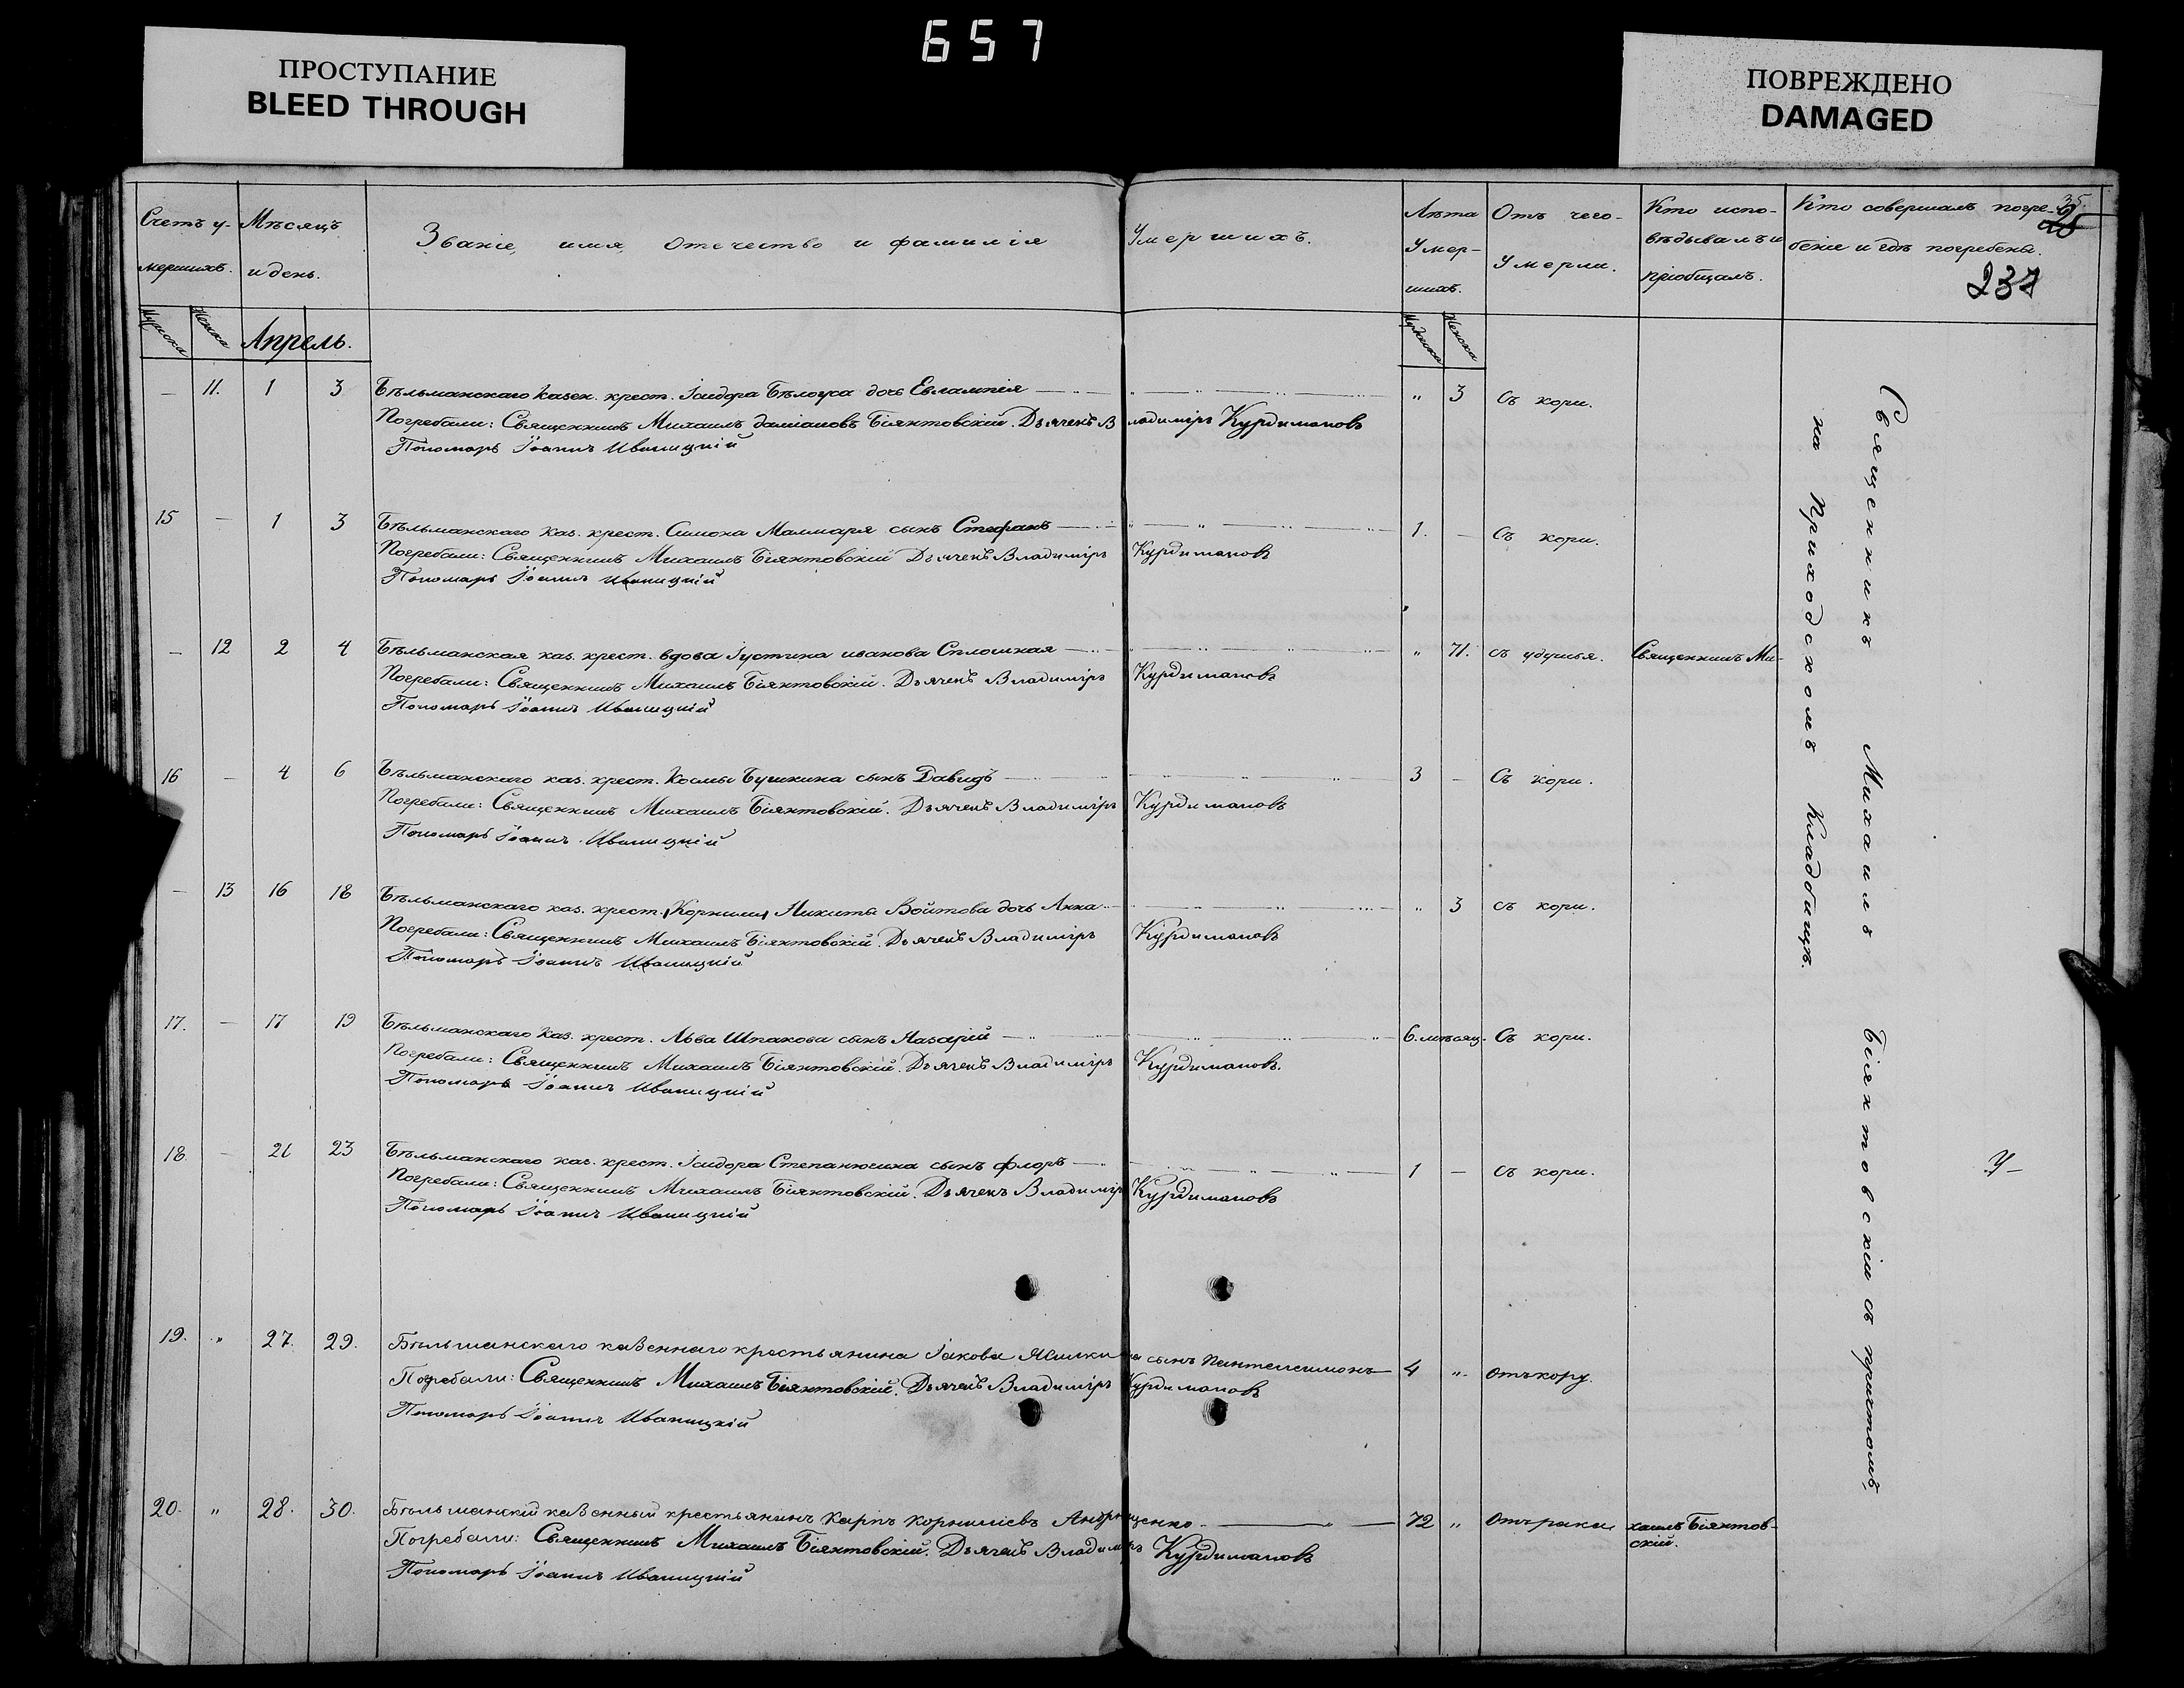 657
ПРОСТУПАНИЕ
BLEED THROUGH
ПОВРЕЖДЕНО
DAMAGED
Счетъ у-
мершихъ.
Мѣсяцъ
и день.
Званіе, имя, отечество и фамилія Умершихъ.
Лѣта
Умер-
шихъ.
Отъ чего
Умерли.
Кто испо-
вѣдывалъ и
пріобщалъ.
Кто совершалъ погре-
беніе и гдѣ погребены.
35.
25
237
Мужска
Женска
Апрель.
Мужска
Женска
— 11. 1 3 Бѣльманскаго казен. крест. Ісидора Бѣлоуса дочь Евлампія " 3 Съ кори.
Погребали: Священникъ Михаилъ Даміановъ Біянтовскій. Дьячекъ Владиміръ Курдимановъ
Пономарь Іоаннъ Иваницкій
15 — 1 3 Бѣльманскаго каз. крест. Симона Маммаря сынъ Стефанъ 1. — Съ кори.
Погребали: Священникъ Михаилъ Біянтовскій Дьячекъ Владиміръ Курдимановъ
Пономарь Іоаннъ Иваницкій
— 12 2 4 Бѣльманская каз. крест. вдова Іустина иванова Сплошная " 71. съ удушья. Священникъ Ми-
Погребали: Священникъ Михаилъ Біянтовскій. Дьячекъ Владиміръ Курдимановъ
Пономарь Іоаннъ Иваницкій
16 — 4 6 Бѣльманскаго каз. крест. Космы Бушкина сынъ Давидъ 3 — Съ кори.
Погребали: Священникъ Михаилъ Біянтовскій. Дьячекъ Владиміръ Курдимановъ
Пономарь Іоаннъ Иваницкій
— 13 16 18 Бѣльманскаго каз. крест. (Корнилія) Никиты Войтова дочь Анна " 3 съ кори.
Погребали: Священникъ Михаилъ Біянтовскій. Дьячекъ Владиміръ Курдимановъ
Пономарь Іоаннъ Иваницкій
17. — 17 19 Бѣльманскаго каз. крест. Льва Шпакова сынъ Назарій 6. мѣсяц. Съ кори.
Погребали: Священникъ Михаилъ Біянтовскій. Дьячекъ Владиміръ Курдимановъ.
Пономарь Іоаннъ Иваницкій
18 — 21 23 Бѣльманскаго каз. крест. Ісидора Степанюшка сынъ Флоръ 1 — съ кори.
Погребали: Священникъ Михаилъ Біянтовскій. Дьячекъ Владиміръ Курдимановъ
Пономарь Іоаннъ Иваницкій
19. " 27. 29. Бѣльманскаго казеннаго крестьянина Іакова сынъ Пантелеимонъ 4 " отъ кору.
Погребали: Священникъ Михаилъ Біянтовскій. Дьячекъ Владиміръ Курдимановъ
Пономарь Іоаннъ Иваницкій
20. " 28. 30. Бѣльманскій казенный крестьянинъ Карпъ Корниліевъ Андрющенко 72 " Отъ рака хаилъ Біянтов-
скій.
Погребали: Священникъ Михаилъ Біянтовскій. Дьячекъ Владиміръ Курдимановъ
Пономарь Іоаннъ Иваницкій
Священникъ Михаилъ Біянтовскій съ причтомъ
на Приходскомъ Кладбищѣ.